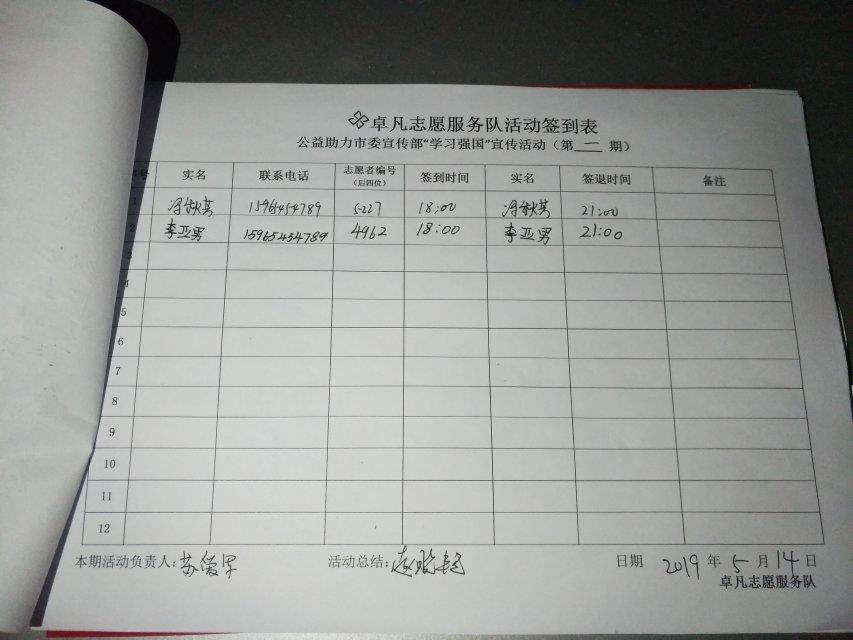 卓凡志愿服务队活动签到表
公益助力市委宣传部“学习强国”宣传活动（第 二 期）
号 实名 联系电话 志愿者编号（后四位） 签到时间 实名 签退时间 备注
1 冯秋英 15965454789 5227 18:00 冯秋英 21:00
2 李亚男 15965454789 4962 18:00 李亚男 21:00
3
4
5
6
7
8
9
10
11
12
本期活动负责人: 活动总结: 日期 2019 年 5 月 14 日
卓凡志愿服务队